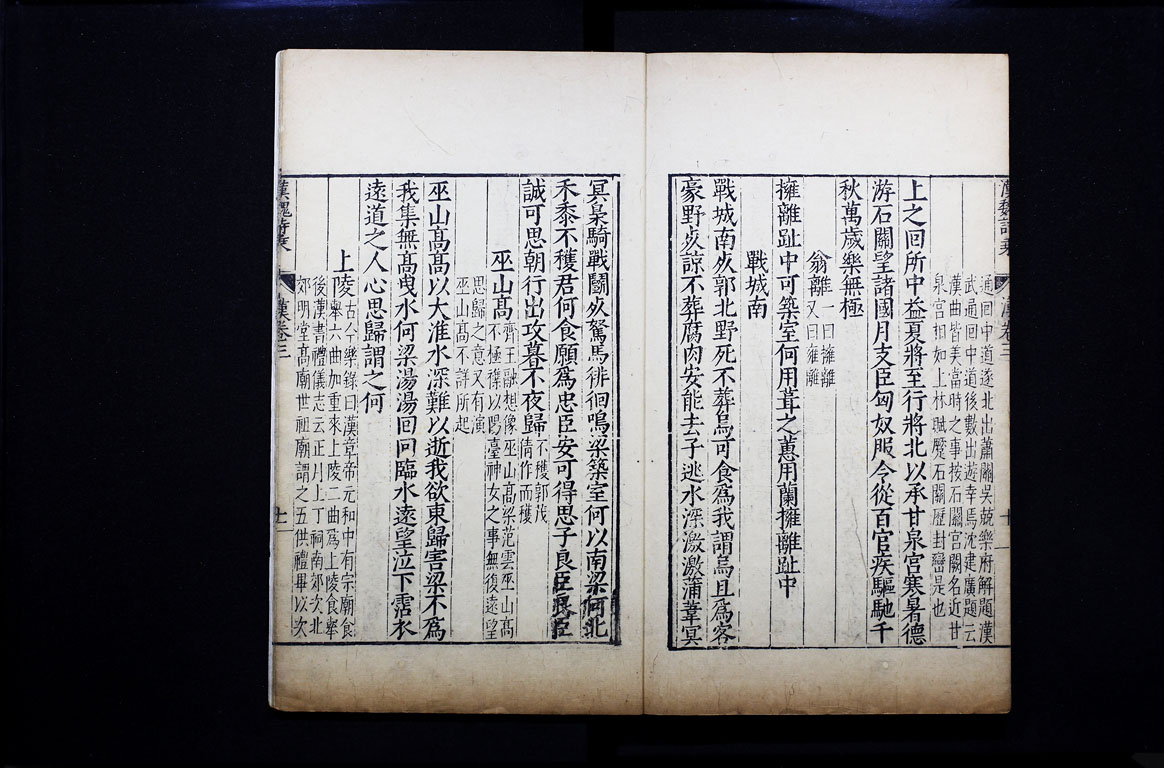 漢魏詩乗
漢卷三
十
通回中道遂北出蕭關吳兢樂府解題漢
武通回中道後數出遊幸焉沈建廣題云
漢曲皆美當時之事按石關宮關名近甘
泉宮相如上林賦蹷石關歷封巒是也
上之回所中益夏將至行將北以承甘泉宮寒暑德
游石關望諸國月支臣匈奴服令從百官疾驅馳千
秋萬歲樂無極
翁離一曰擁離
又曰雍離
擁離趾中可築室何用葺之蕙用蘭擁離趾中
戰城南
戰城南死郭北野死不葬烏可食爲我謂烏且爲客
豪野死諒不葬腐肉安能去子逃水深激激蒲葦冥
冥梟騎戰鬭死駑馬徘徊鳴梁築室何以南梁何北
禾黍不穫君何食願爲忠臣安可得思子良臣良臣
誠可思朝行出攻暮不夜歸不穫郭茂
倩作而穫
巫山髙齊王融想像巫山髙梁范雲巫山髙
不極襍以陽臺神女之事無復遠望
思歸之意又有演
巫山髙不詳所起
巫山髙髙以大淮水深難以逝我欲東歸害梁不爲
我集無髙曵水何梁湯湯回回臨水遠望泣下霑衣
遠道之人心思歸謂之何
上陵古今樂錄曰漢章帝元和中有宗廟食
舉六曲加重來上陵二曲爲上陵食舉
後漢書禮儀志云正月上丁祠南郊次北
郊明堂髙廟世祖廟謂之五供禮畢以次
漢魏詩乗
漢卷三
十一